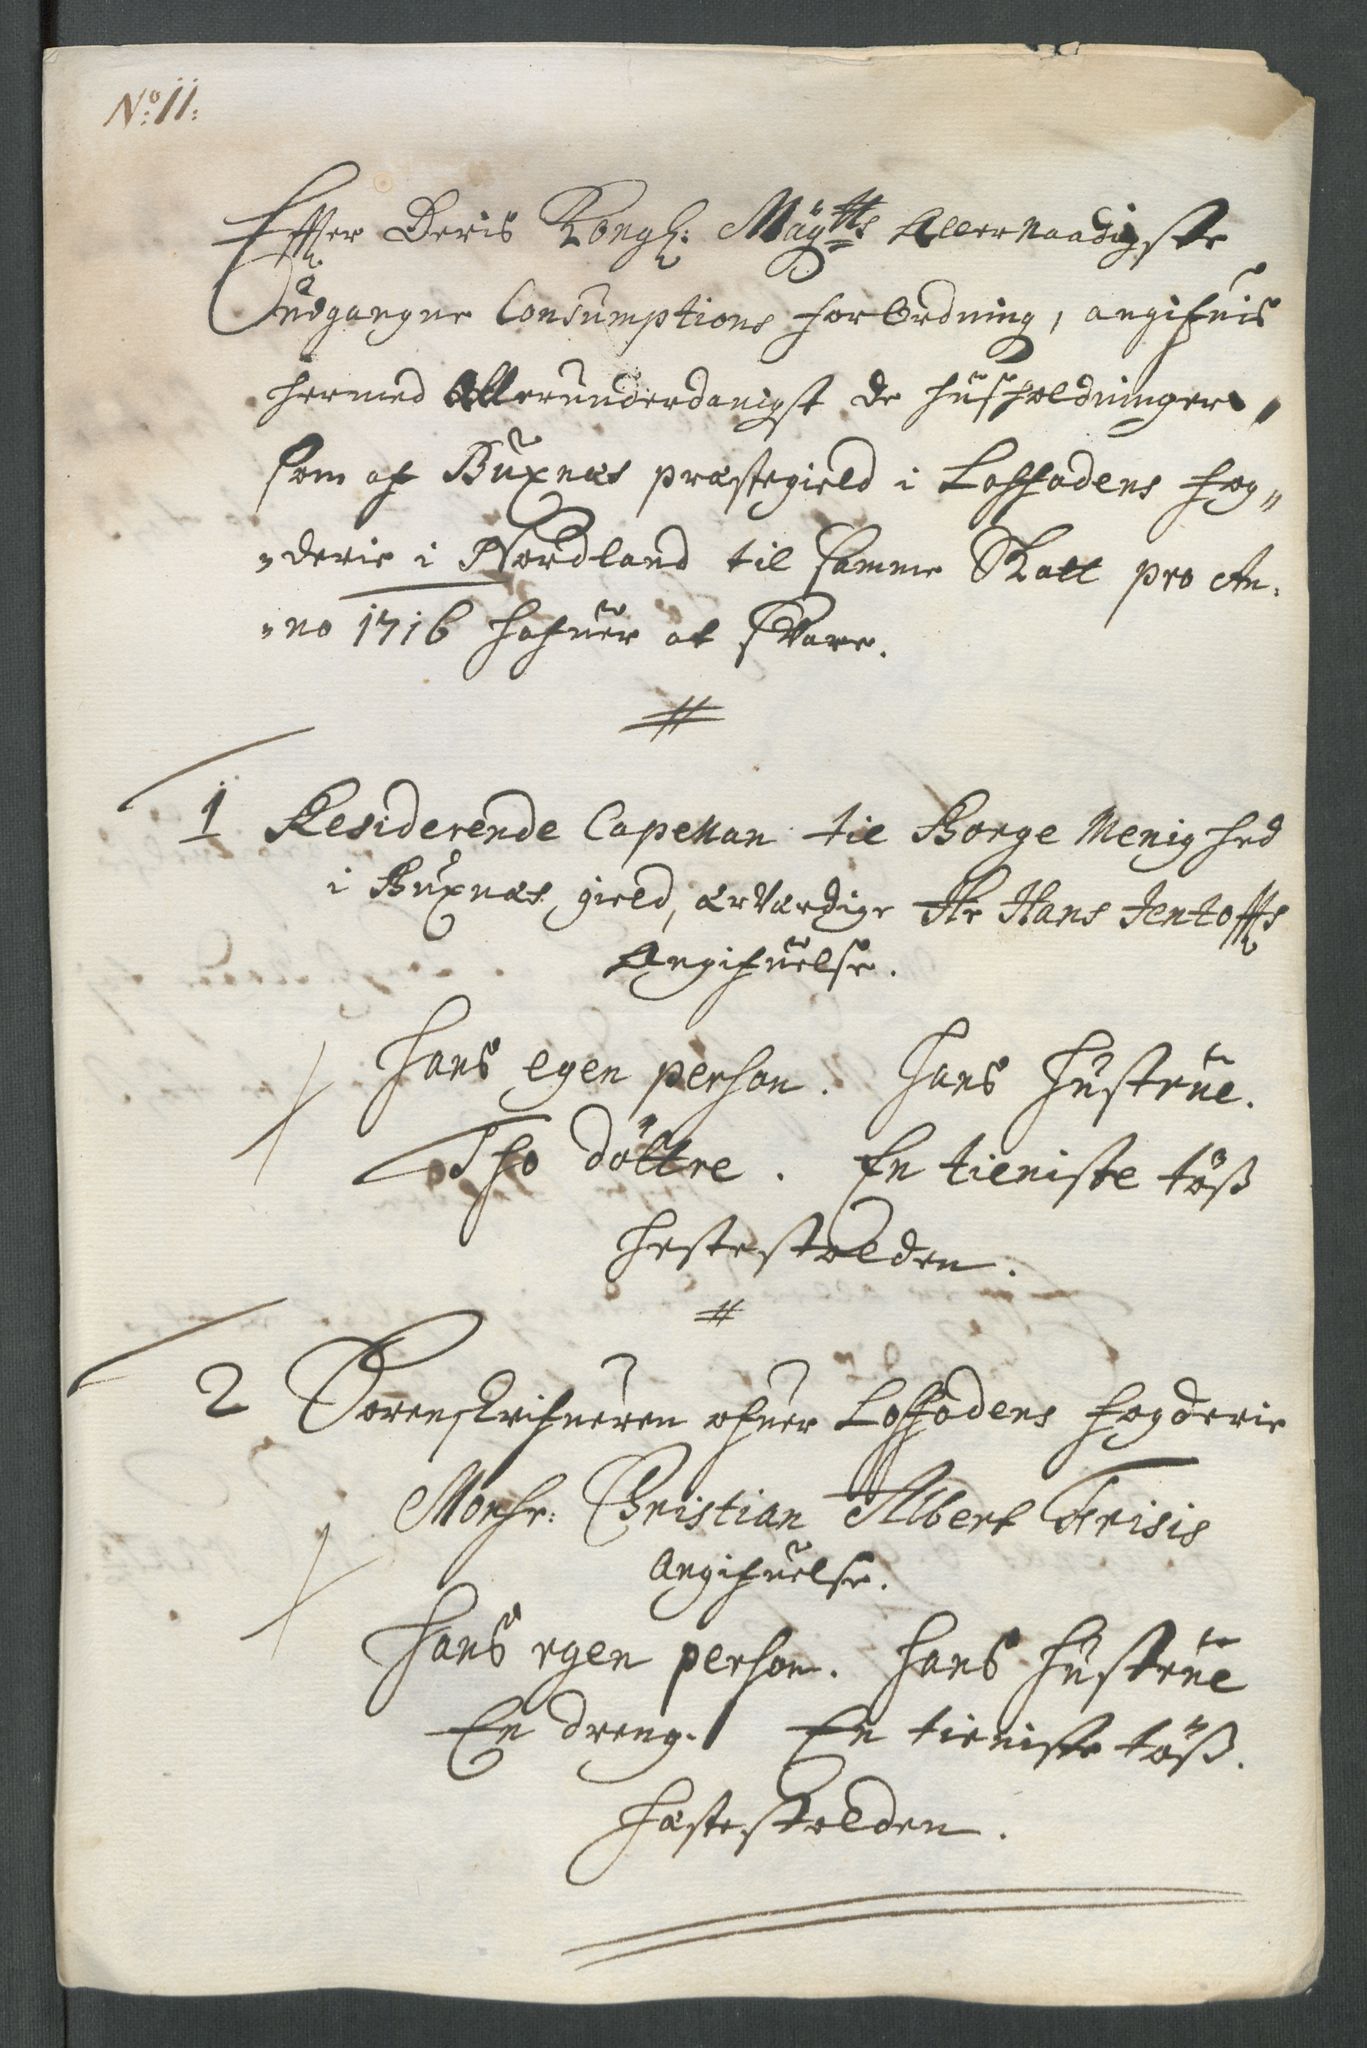 No: 11:
Effter Deris Kongl: Maÿtts Allernaadigste
Udgangne Consumptions forOrdning, angifuis
hermed Allerunderdanigst de huusholdninger,
som af Buxnæs præstegield i Loffodens fog„
„derie i Nordland til samme Skatt pro An„
„no 1716 hafuer at Svare.
1 Residerende Capellan til Borge Menighed
i Buxnæs gield, ærværdige Hr Hans Jentoffts
Angifuelse.
Hans egen person. Hans Hustrue.
Tho döttre. En tieniste töß
Hestesko­lden.
2 Sorenskrifueren ofuer Loffodens fogderie
Monsr: Christian Albert Frisis
Angifuelse.
Hans egen person. Hans Hustrue
En dreng. En tieniste töß.